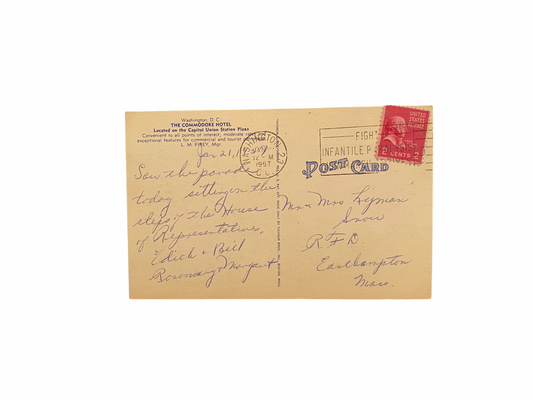 Washington, D. C.
THE COMMODORE HOTEL
Located on the Capitol Union Station Plaza
Convenient to all points of interest; moderate
exceptional features for commercial and tourist
L. M. FINEY, Mgr.
Jan 21, 1
Saw the parade
today sitting on the
steps of the House
of Representatives,
Edith + Bill
Rosemary & Margaret
WASHINGTON 23
12 M
1957
D.C.
FIGHT
INFANTILE P
UNITED
STATES
POSTAGE
2 CENTS 2
POST CARD
Mr & Mrs Lyman
Snow
R F D.
Easthampton
Mass.